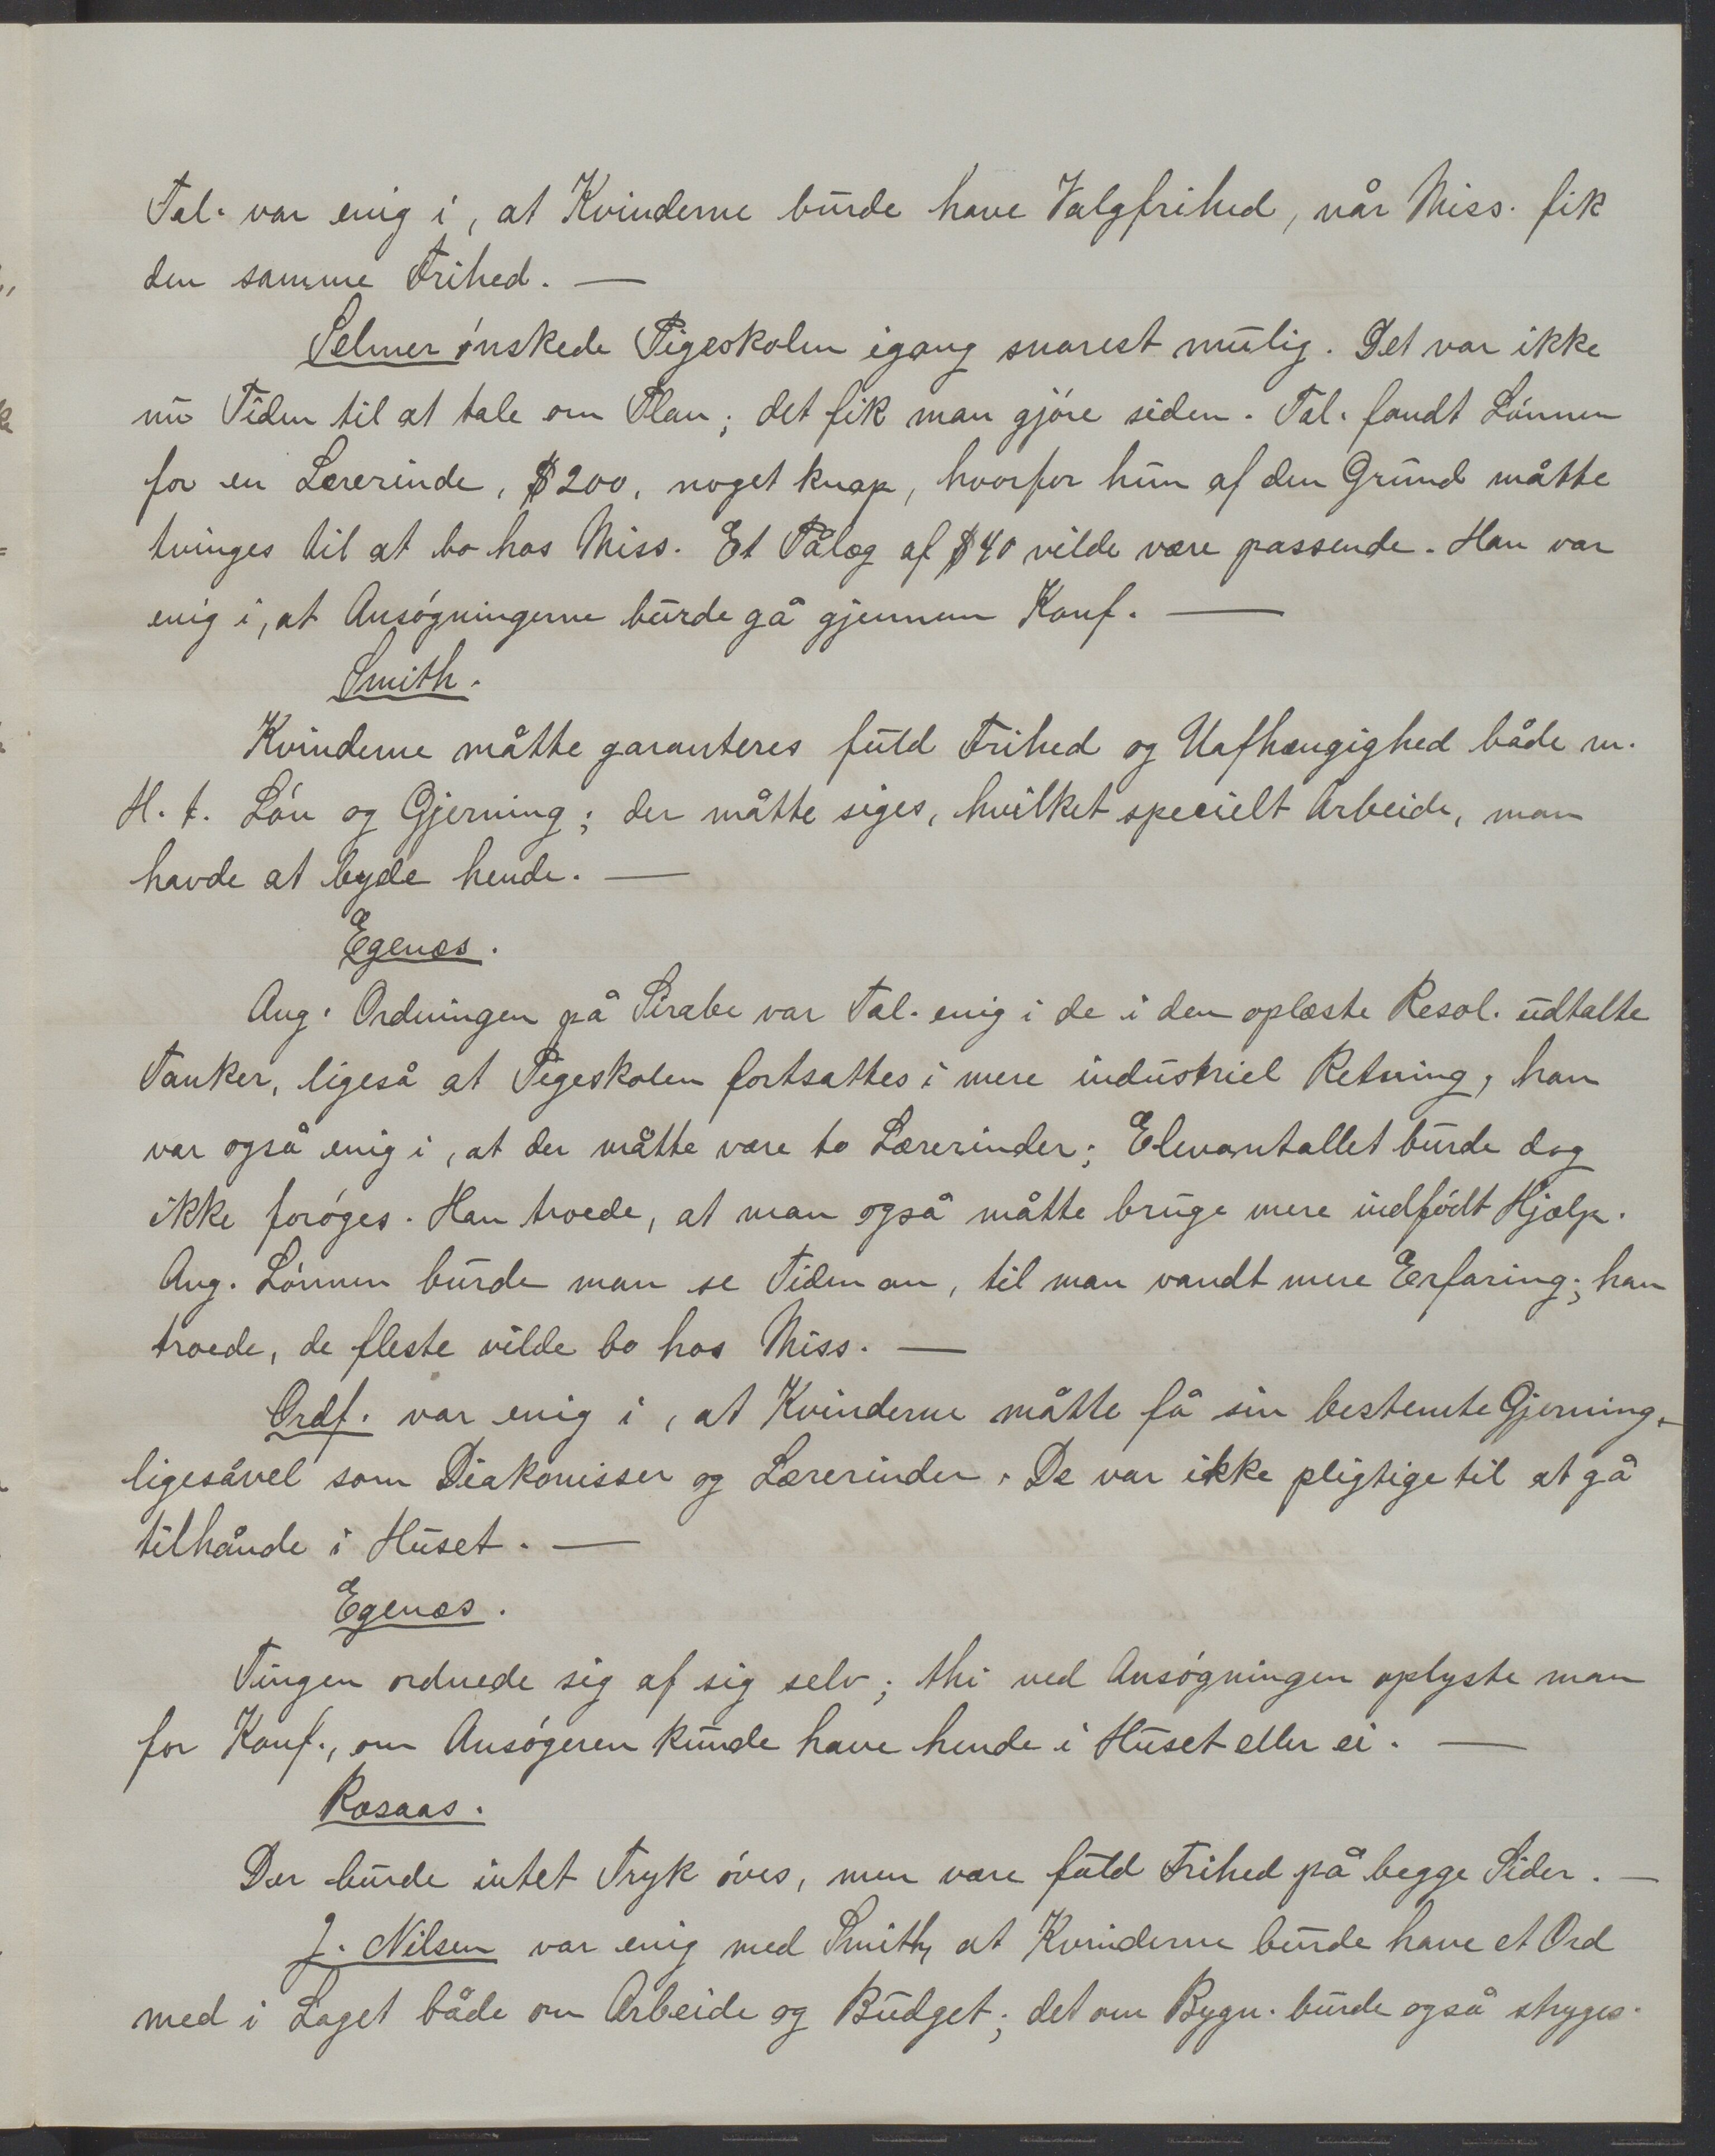 Tal. var enig i, at Kvinderne burde have Valgfrihed, når Miss. fik
den samme Frihed. —
Selmer ønskede Pigeskolen igang snarest mulig. Det var ikke
nu Tiden til at tale om Plan; det fik man gjøre siden. Tal. fandt Lønnen
for en Lærerinde, $200, noget knap, hvorfor hun af den Grund måtte
tvinges til at bo hos Miss. Et Pålæg af $40 vilde være passende. Han var
enig i, at Ansøgningerne burde gå gjennem Konf. —
Smith.
Kvinderne måtte garanteres fuld Frihed og Uafhængighed både m.
H. t. Løn og Gjerning; der måtte siges, hvilket specielt Arbeide, man
havde at byde hende. —
Egenæs.
Ang. Ordningen på Sirabe var Tal. enig i de i den oplæste Resol. udtalte
Tanker, ligeså at Pigeskolen fortsattes i mere industriel Retning, han
var også enig i, at der måtte være to Lærerinder; Elevantallet burde dog
ikke forøges. Han troede, at man også måtte bruge mere indfødt Hjælp.
Ang. Lønnen burde man se Tiden an, til man vandt mere Erfaring; han
troede, de fleste vilde bo hos Miss. —
Ordf. var enig i, at Kvinderne måtte få sin bestemte Gjerning,
ligesåvel som Diakonisser og Lærerinder. De var ikke pligtige til at gå
tilhånde i Huset. —
Egenæs.
Tingen ordnede sig af sig selv; thi ved Ansøgningen oplyste man
for Konf., om Ansøgeren kunde have hende i Huset eller ei. —
Rosaas.
Der burde intet Tryk øves, men være fuld Frihed på begge Sider. —
J. Nilsen var enig med Smith, at Kvinderne burde have et Ord
med i Laget både om Arbeide og Budget; det om Bygn. burde også stryges.